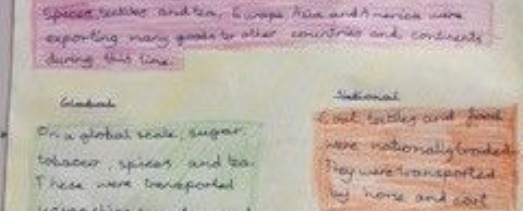 Spices, textiles and tea, Europe Asia and America were
exporting many goods to other countries and continents
during this time.
Global
On a global scale, sugar,
tobacco, spices and tea.
These were transported
National
Coal textiles and food
were nationally traded.
They were transported
by horse and cart